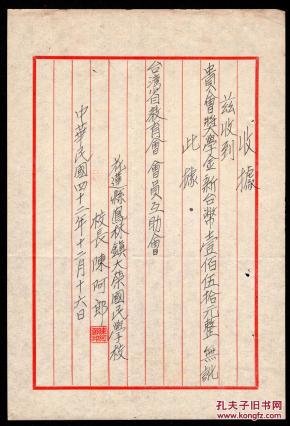 收據
茲收到
貴會獎學金新台幣壹佰伍拾元整無訛
此據
台灣省教育會會員互助會
花蓮縣鳳林鎮大榮國民學校
校長陳阿郎
中華民國四十三年十二月十六日
孔夫子旧书网
www.kongfz.com